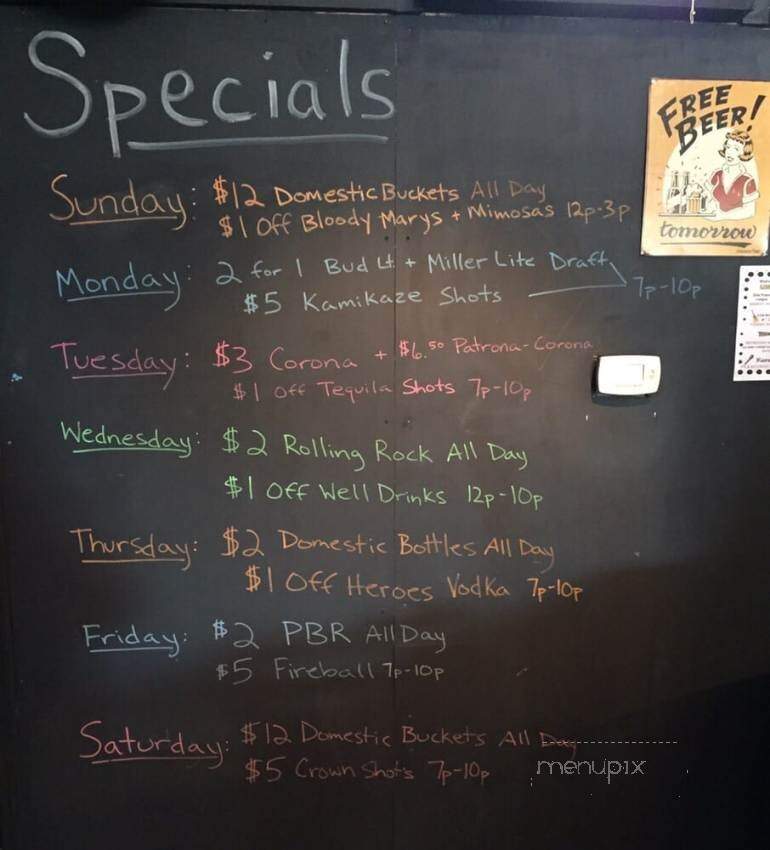 Specials
FREE
BEER!
tomorrow
Sunday: $12 Domestic Buckets All Day
$1 Off Bloody Marys + Mimosas 12p-3p
Monday: 2 for 1 Bud Lt. + Miller Lite Draft
$5 Kamikaze Shots 7p-10p
Tuesday: $3 Corona + $6.50 Patrona-Corona
$1 Off Tequila Shots 7p-10p
Wednesday: $2 Rolling Rock All Day
$1 Off Well Drinks 12p-10p
Thursday: $2 Domestic Bottles All Day
$1 Off Heroes Vodka 7p-10p
Friday: $2 PBR All Day
$5 Fireball 7p-10p
Saturday: $12 Domestic Buckets All Day
$5 Crown Shots 7p-10p
menupix